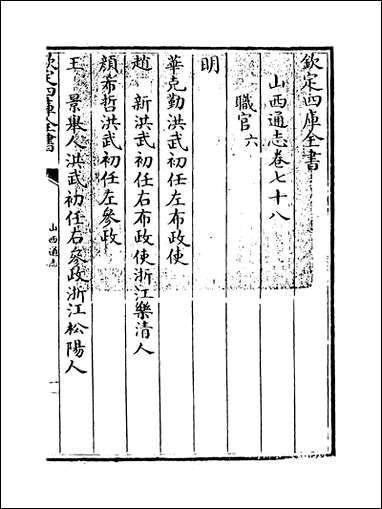 欽定四庫全書
山西通志卷七十八
職官六
明
華克勤洪武初任左布政使
趙新洪武初任右布政使浙江樂清人
顔希哲洪武初任左參政
王景舉人洪武初任右參政浙江松陽人
欽定四庫全書
山西通志